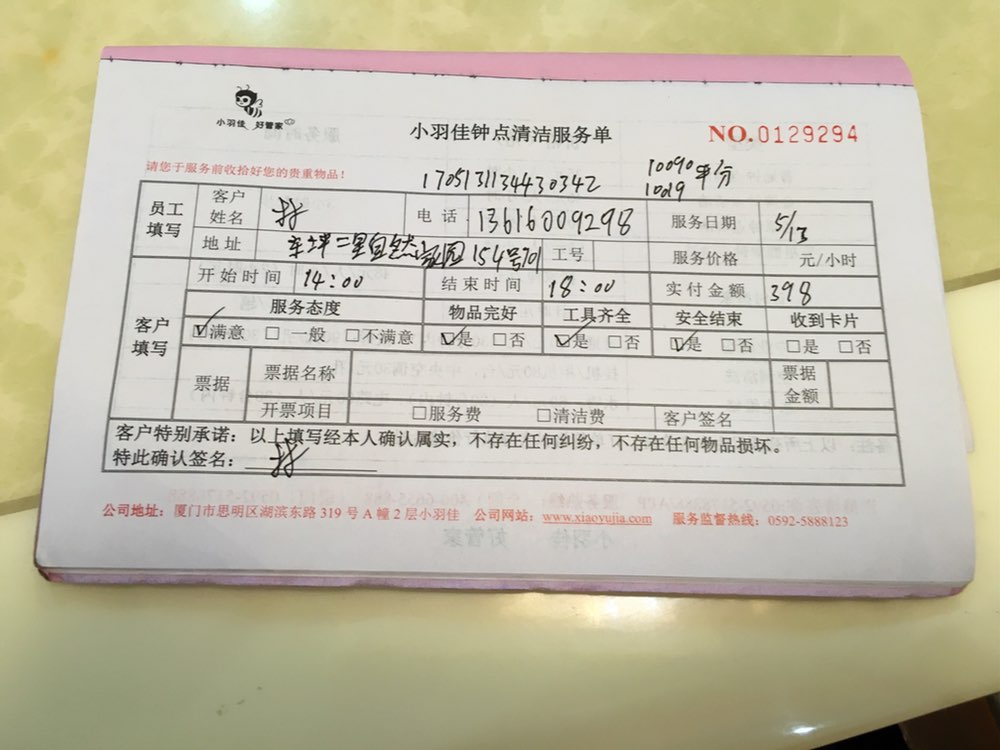 小羽佳 好管家
小羽佳钟点清洁服务单 NO.0129294
请您于服务前收拾好您的贵重物品！ 1705131134430342 10090平分
10219
员工填写 客户姓名 电话 13616009298 服务日期 5/13
地址 二里 家园154号701 工号 服务价格 元/小时
客户填写 开始时间 14:00 结束时间 18:00 实付金额 398
服务态度 物品完好 工具齐全 安全结束 收到卡片
☑满意 □一般 □不满意 ☑是 □否 ☑是 □否 ☑是 □否 □是 □否
票据 票据名称 票据金额
开票项目 □服务费 □清洁费 客户签名
客户特别承诺：以上填写经本人确认属实，不存在任何纠纷，不存在任何物品损坏。
特此确认签名：
公司地址：厦门市思明区湖滨东路 319 号 A 幢 2 层小羽佳 公司网站：www.xiaoyujia.com 服务监督热线：0592-5888123